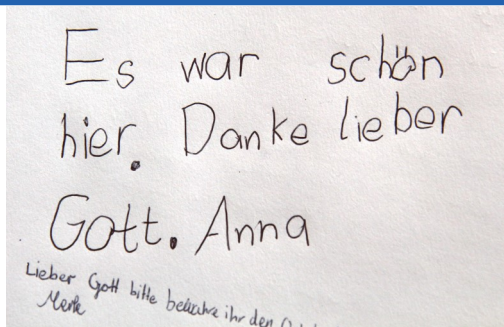 Es war schön
hier. Danke lieber
Gott. Anna
Lieber Gott bitte bewahre ihr den
Merle